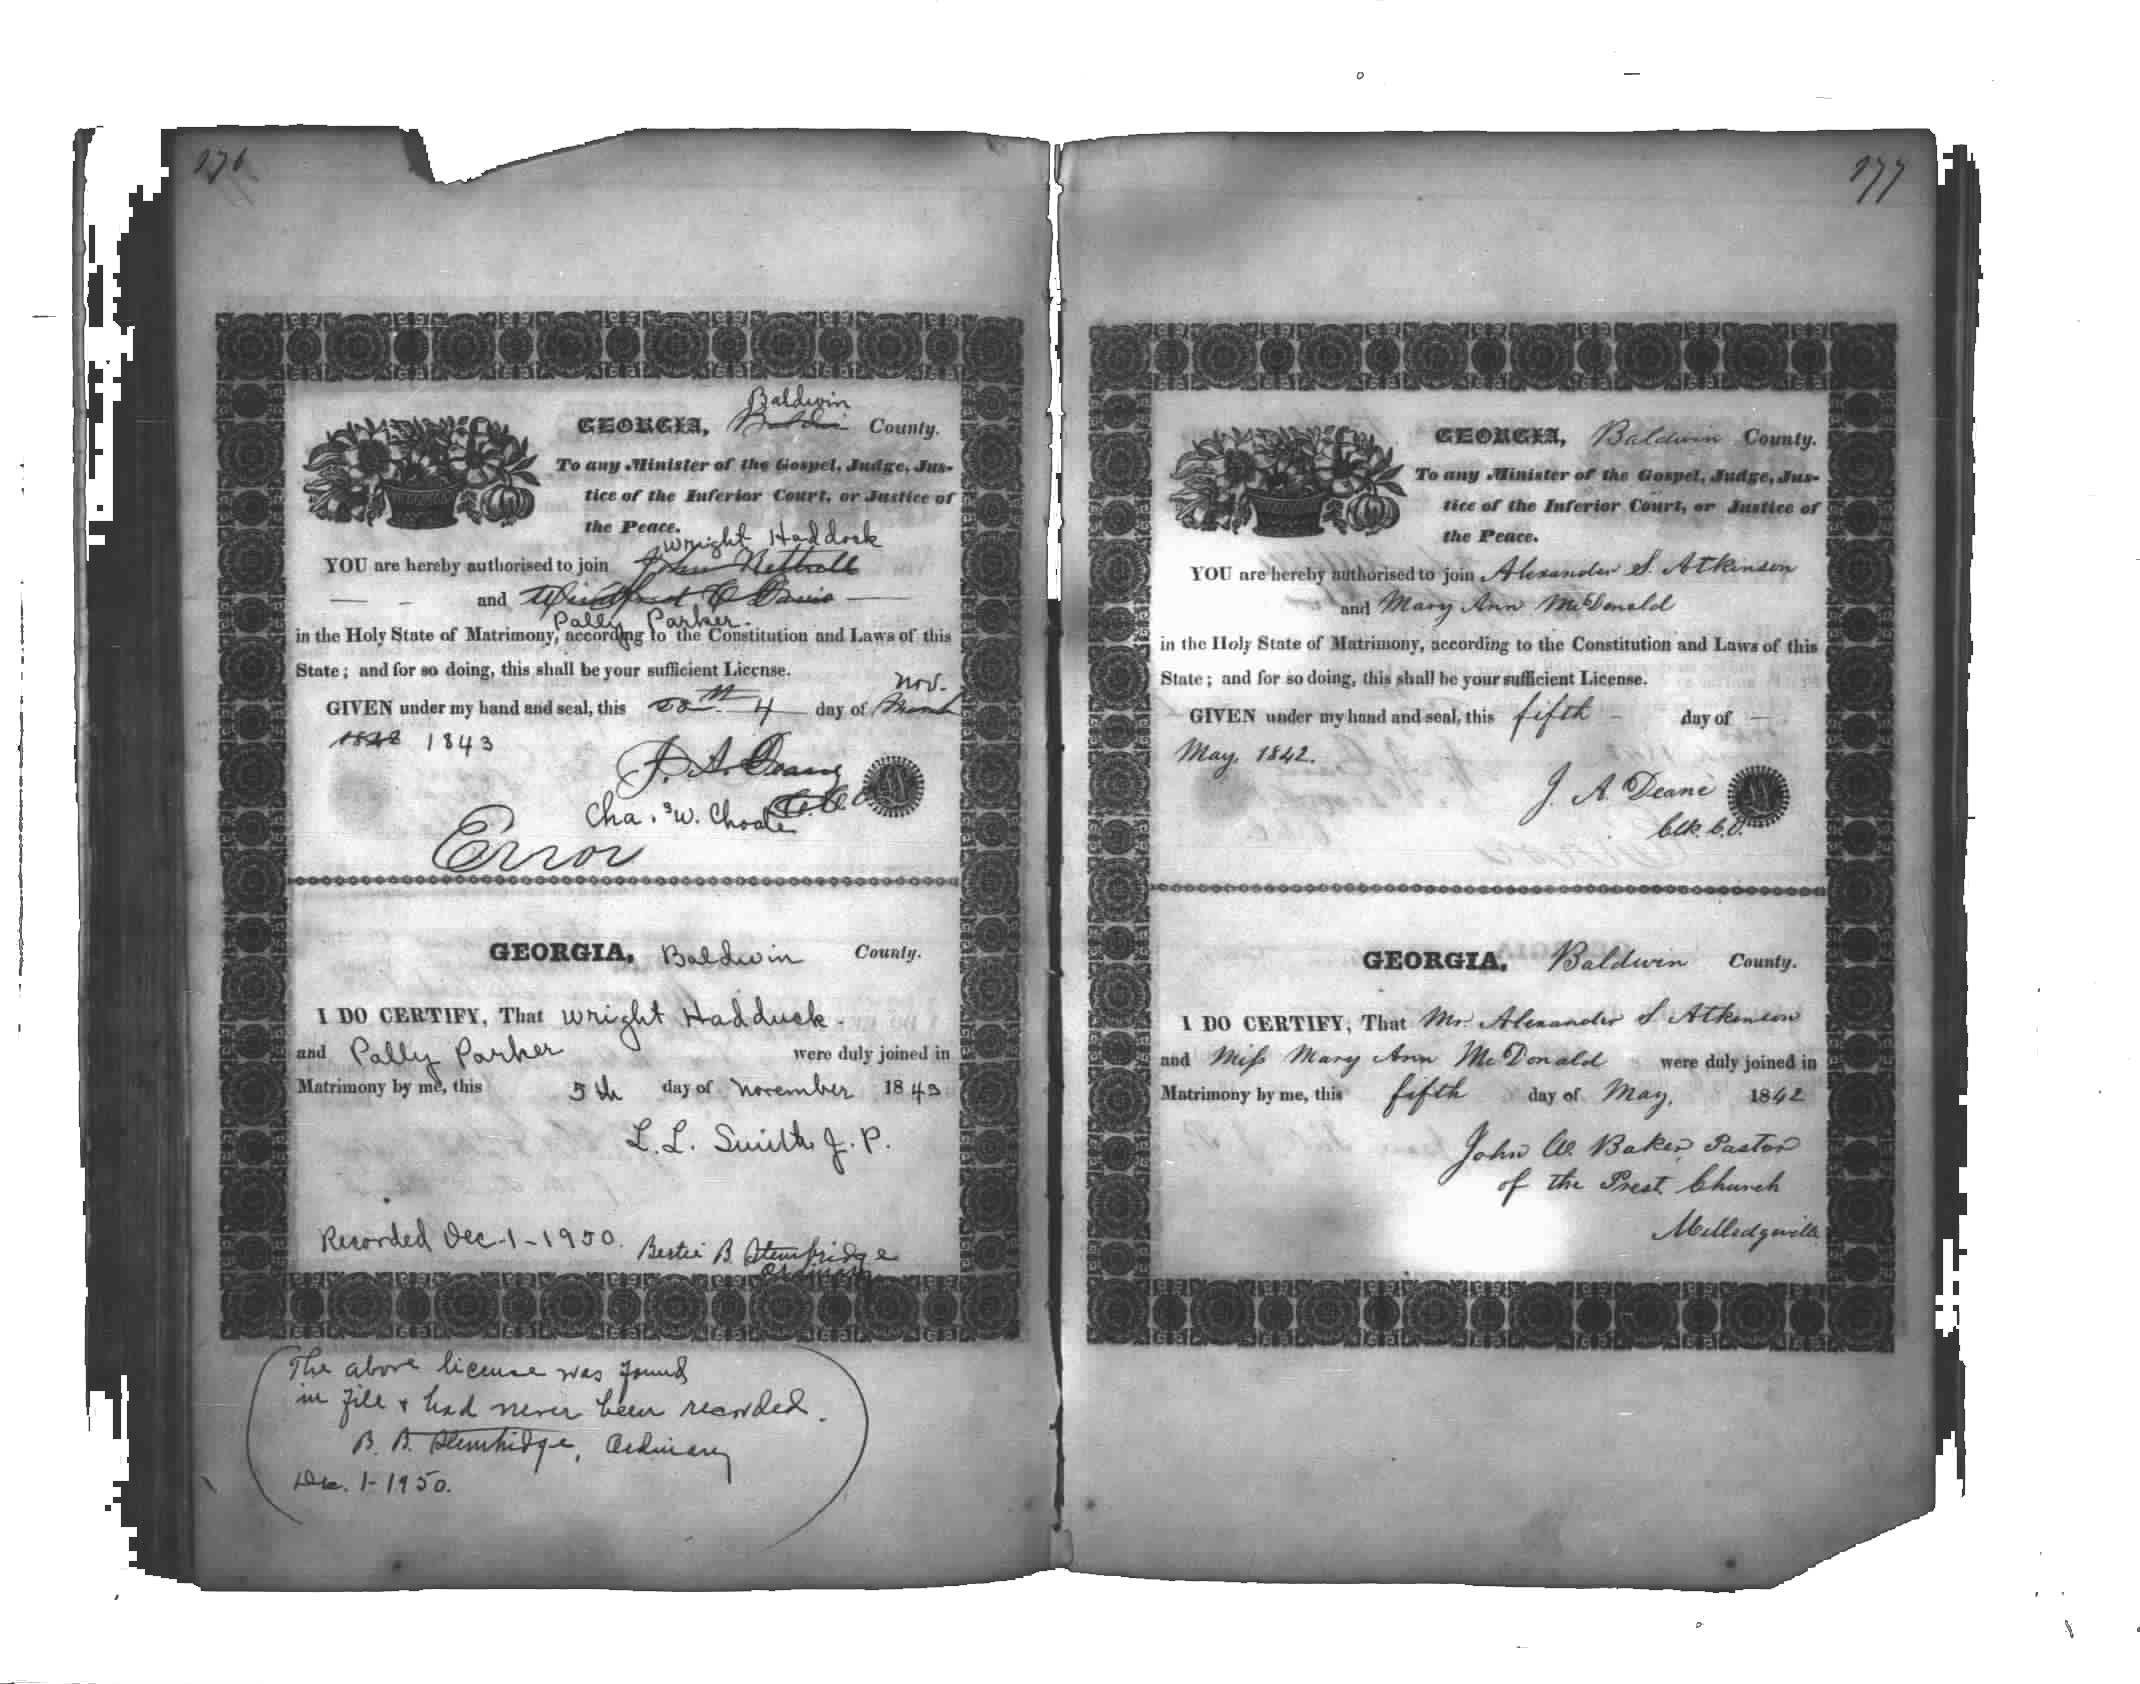 176
Baldwin
GEORGIA, County.
To any Minister of the Gospel, Judge, Jus-
tice of the Inferior Court, or Justice of
the Peace.
Wright Haddock
YOU are hereby authorised to join John
and Winifred C Davis
Pally Parker.
in the Holy State of Matrimony, according to the Constitution and Laws of this
State; and for so doing, this shall be your sufficient License.
Nov.
GIVEN under my hand and seal, this 4 day of March
1842 1843
J. A. Deane
C.C.O
Cha.s W. Choate
Error
GEORGIA, Baldwin County.
I DO CERTIFY, That Wright Hadduck.
and Pally Parker were duly joined in
Matrimony by me, this 5th day of November 1843
L. L. Smith J. P.
Recorded Dec-1-1950. Bertie B. Stembridge
Ordinary
The above license was found
in file & had never been recorded.
B. B. Stembridge, Ordinary
Dec. 1-1950.
177
GEORGIA, Baldwin County.
To any Minister of the Gospel, Judge, Jus-
tice of the Inferior Court, or Justice of
the Peace.
YOU are hereby authorised to join Alexander S. Atkinson
and Mary Ann McDonald
in the Holy State of Matrimony, according to the Constitution and Laws of this
State; and for so doing, this shall be your sufficient License.
GIVEN under my hand and seal, this fifth day of
May, 1842.
J. A. Deane
Clk. C.O.
GEORGIA, Baldwin County.
I DO CERTIFY, That Mr. Alexander S Atkinson
and Miss Mary Ann McDonald were duly joined in
Matrimony by me, this fifth day of May, 1842
John W. Baker Pastor
of the Prest. Church
Milledgeville